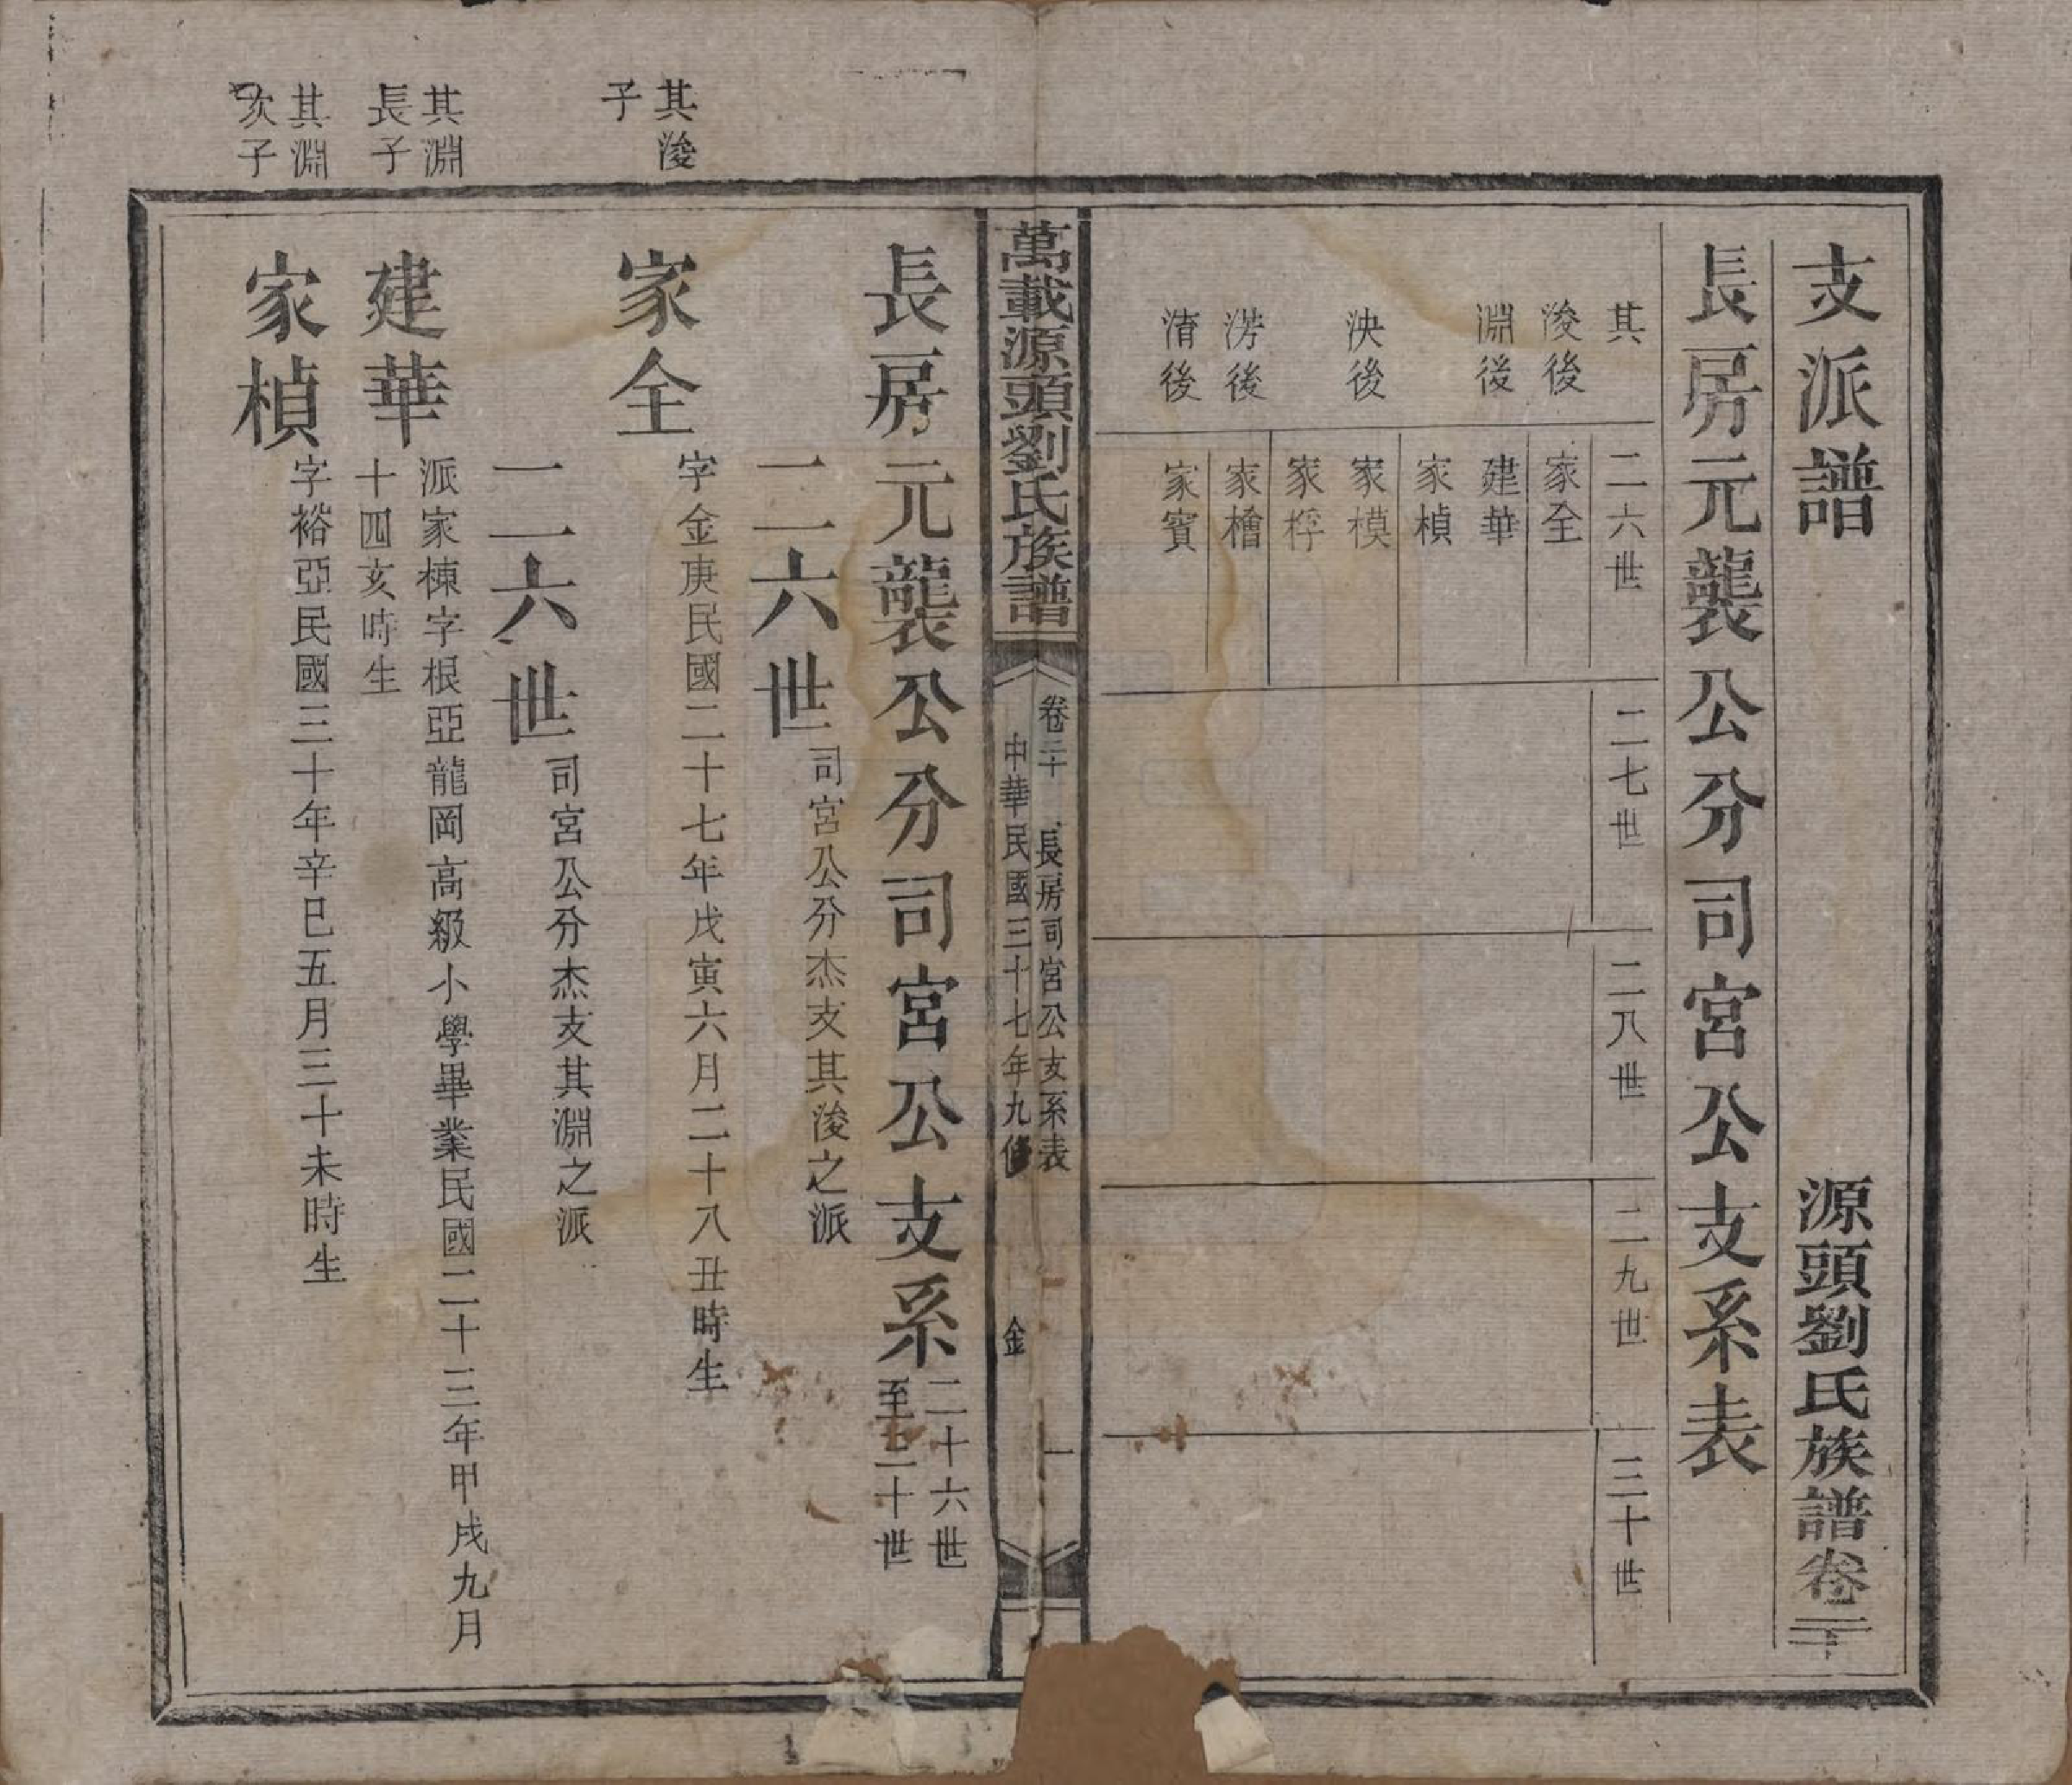 支派譜
源頭劉氏族譜卷二十
長房元襲公分司宮公支系表
其
二六世
二七世
二八世
二九世
三十世
浚後
家全
淵後
建華
家楨
泱後
家模
家桴
淓後
家檜
淯後
家賓
萬載源頭劉氏族譜
卷二十
長房司宮公支系表
一
中華民國三十七年九修
金
長房元襲公分司宮公支系
二十六世
至三十世
二六世
司宮公分杰支其浚之派
其浚
子
家全
字金庚民國二十七年戊寅六月二十八丑時生
二六世
司宮公分杰支其淵之派
其淵
長子
建華
派家棟字根亞龍岡高級小學畢業民國二十三年甲戌九月
十四亥時生
其淵
次子
家楨
字裕亞民國三十年辛巳五月三十未時生